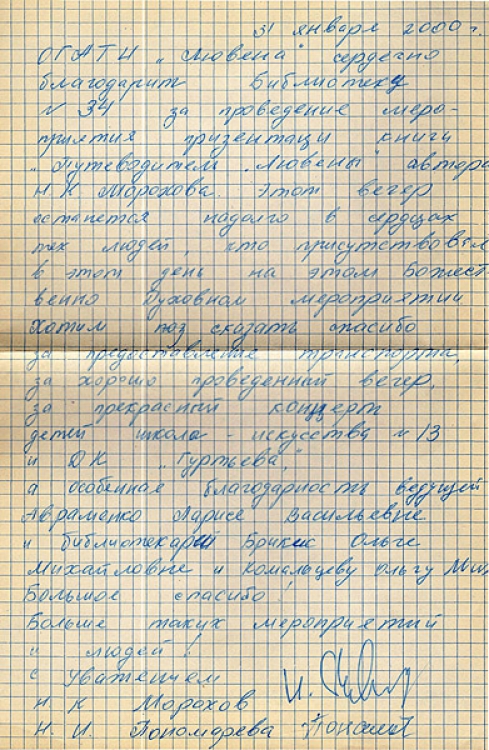 31 января 2000 г.
ОГАТН „Лювена" сердечно
благодарит Библиотеку
№ 34 за проведение меро-
приятия призентаци книги
„Путеводителем Лювены" автора
Н. К Морохова. Этот вечер
останется надолго в сердцах
тех людей, кто присутствовал
в этот день на этом Божест-
венно Духовном мероприятии
Хотим раз сказать спасибо
за предоставление транспорта,
за хорошо проведенный вечер,
за прекрасный концерт
детей школа - искусства № 13
и ДК „Гуртьева",
а особенная благодарность ведущей
Авраменко Ларисе Васильевне
и библиотекарш Брикис Ольге
Михайловне и Комальцеву Ольгу
Большое спасибо!
Больше таких мероприятий
и людей!
с уважением
Н. К Морохов
Н. И. Пономарева